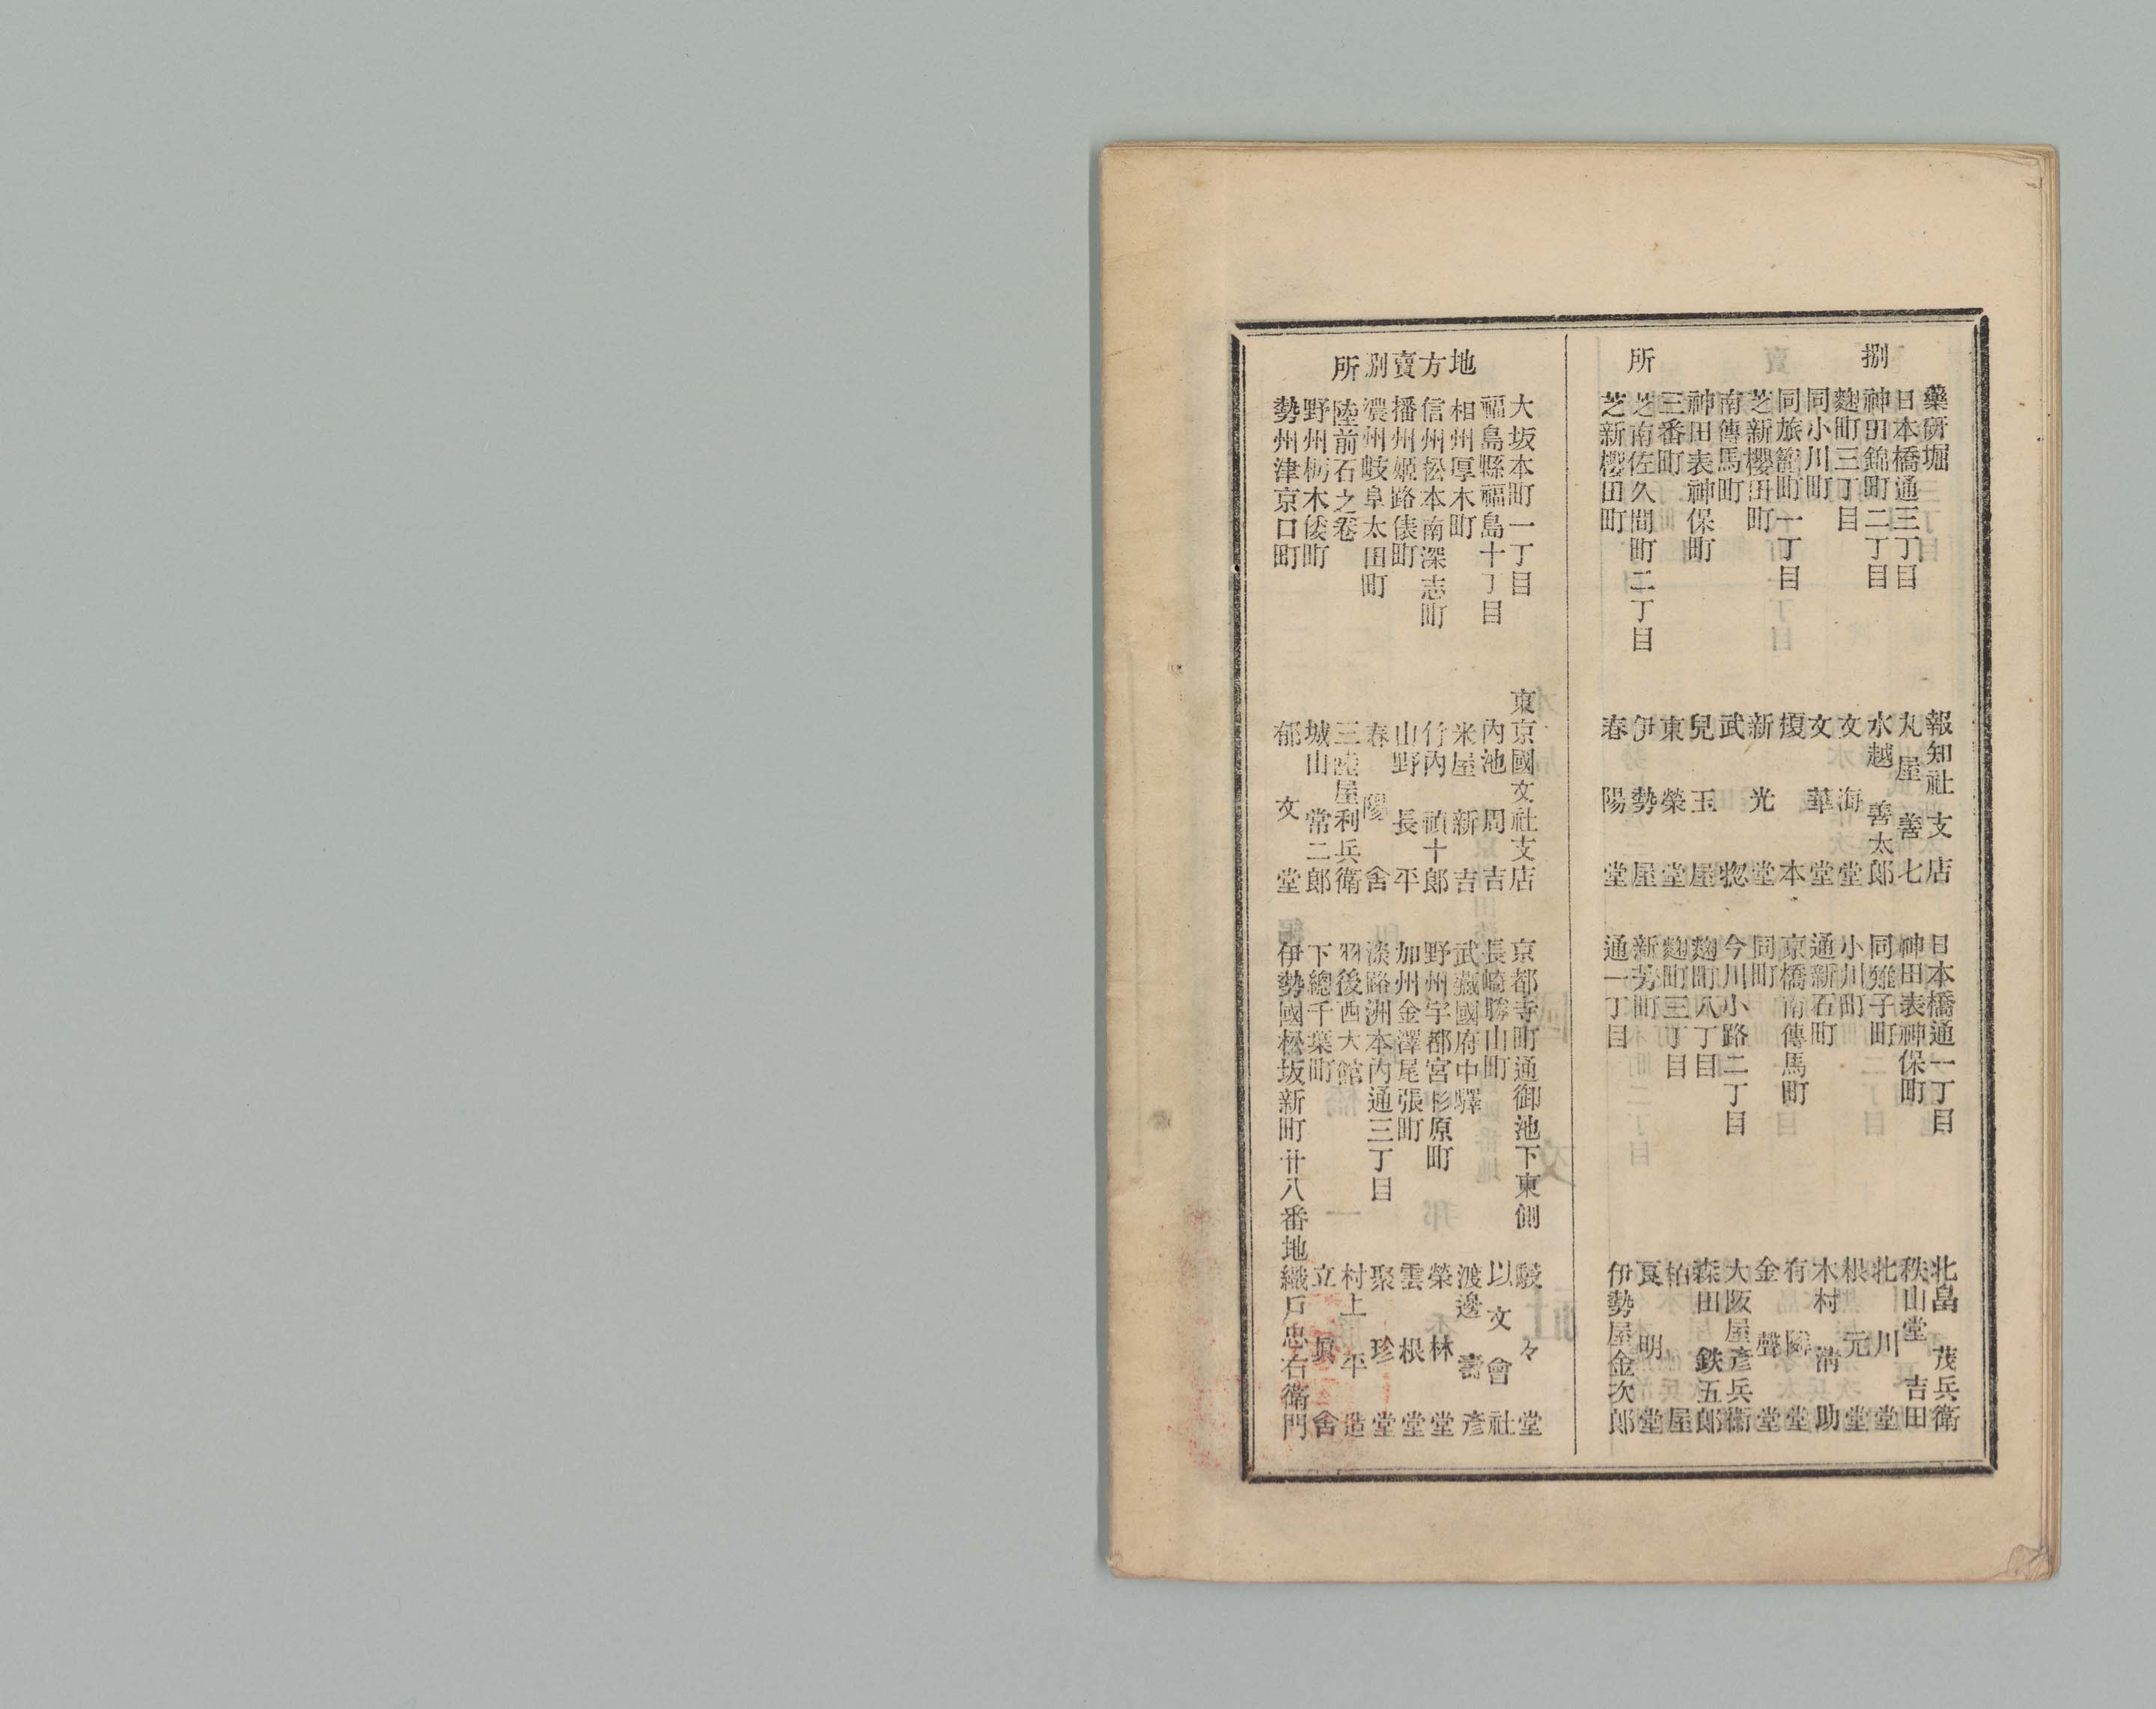 捌
所
藥研堀 報知社支店 日本橋通一丁目 北畠茂兵衛
日本橋通三丁目 丸屋善七 神田表神保町 秩山堂吉田
神田錦町二丁目 水越善太郎 同雉子町 北川堂
麴町三丁目 文海堂 小川町 根元堂
同小川町 文華堂 通新石町 木村淸助
同旅籠町一丁目 榎本 京橋南傳馬町 有隣堂
芝新櫻田町 新光堂 同町 金聲堂
南傳馬町 武惣 今川小路二丁目 大阪屋彥兵衞
神田表神保町 兒玉屋 麴町八丁目 森田鉄五郎
三番町 東榮堂 麴町三丁目 柏屋
芝南佐久間町二丁目 伊勢屋 新芳町 眞明堂
芝新櫻田町 春陽堂 通一丁目 伊勢屋金次郎
地方賣捌所
大坂本町一丁目 東京國文社支店 京都寺町通御池下東側 駸々堂
福島縣福島十丁目 內池周吉 長崎勝山町 以文會社
相州厚木町 米屋新吉 武藏國府中驛 渡邊壽彥
信州松本南深志町 竹內禎十郎 野州宇都宮杉原町 榮林堂
播州姬路俵町 山野長平 加州金澤尾張町 雲根堂
濃州岐阜太田町 春陽舍 淡路洲本內通三丁目 聚珍堂
陸前石之卷 三陸屋利兵衞 羽後西大館 村上平造
野州栃木倭町 城山常二郎 下總千葉町 立眞舍
勢州津京口町 郁文堂 伊勢國松坂新町廿八番地 織戶忠右衞門